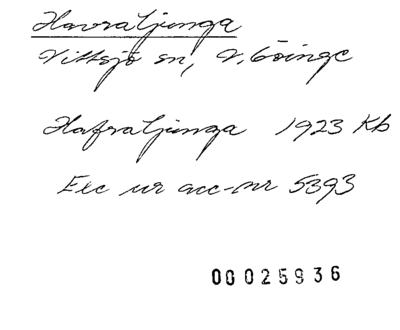 Havraljunga
Vittsjö sn, V. Göinge
Hafraljunga 1923 Kb
Exc ur acc-nr 5393
00025936